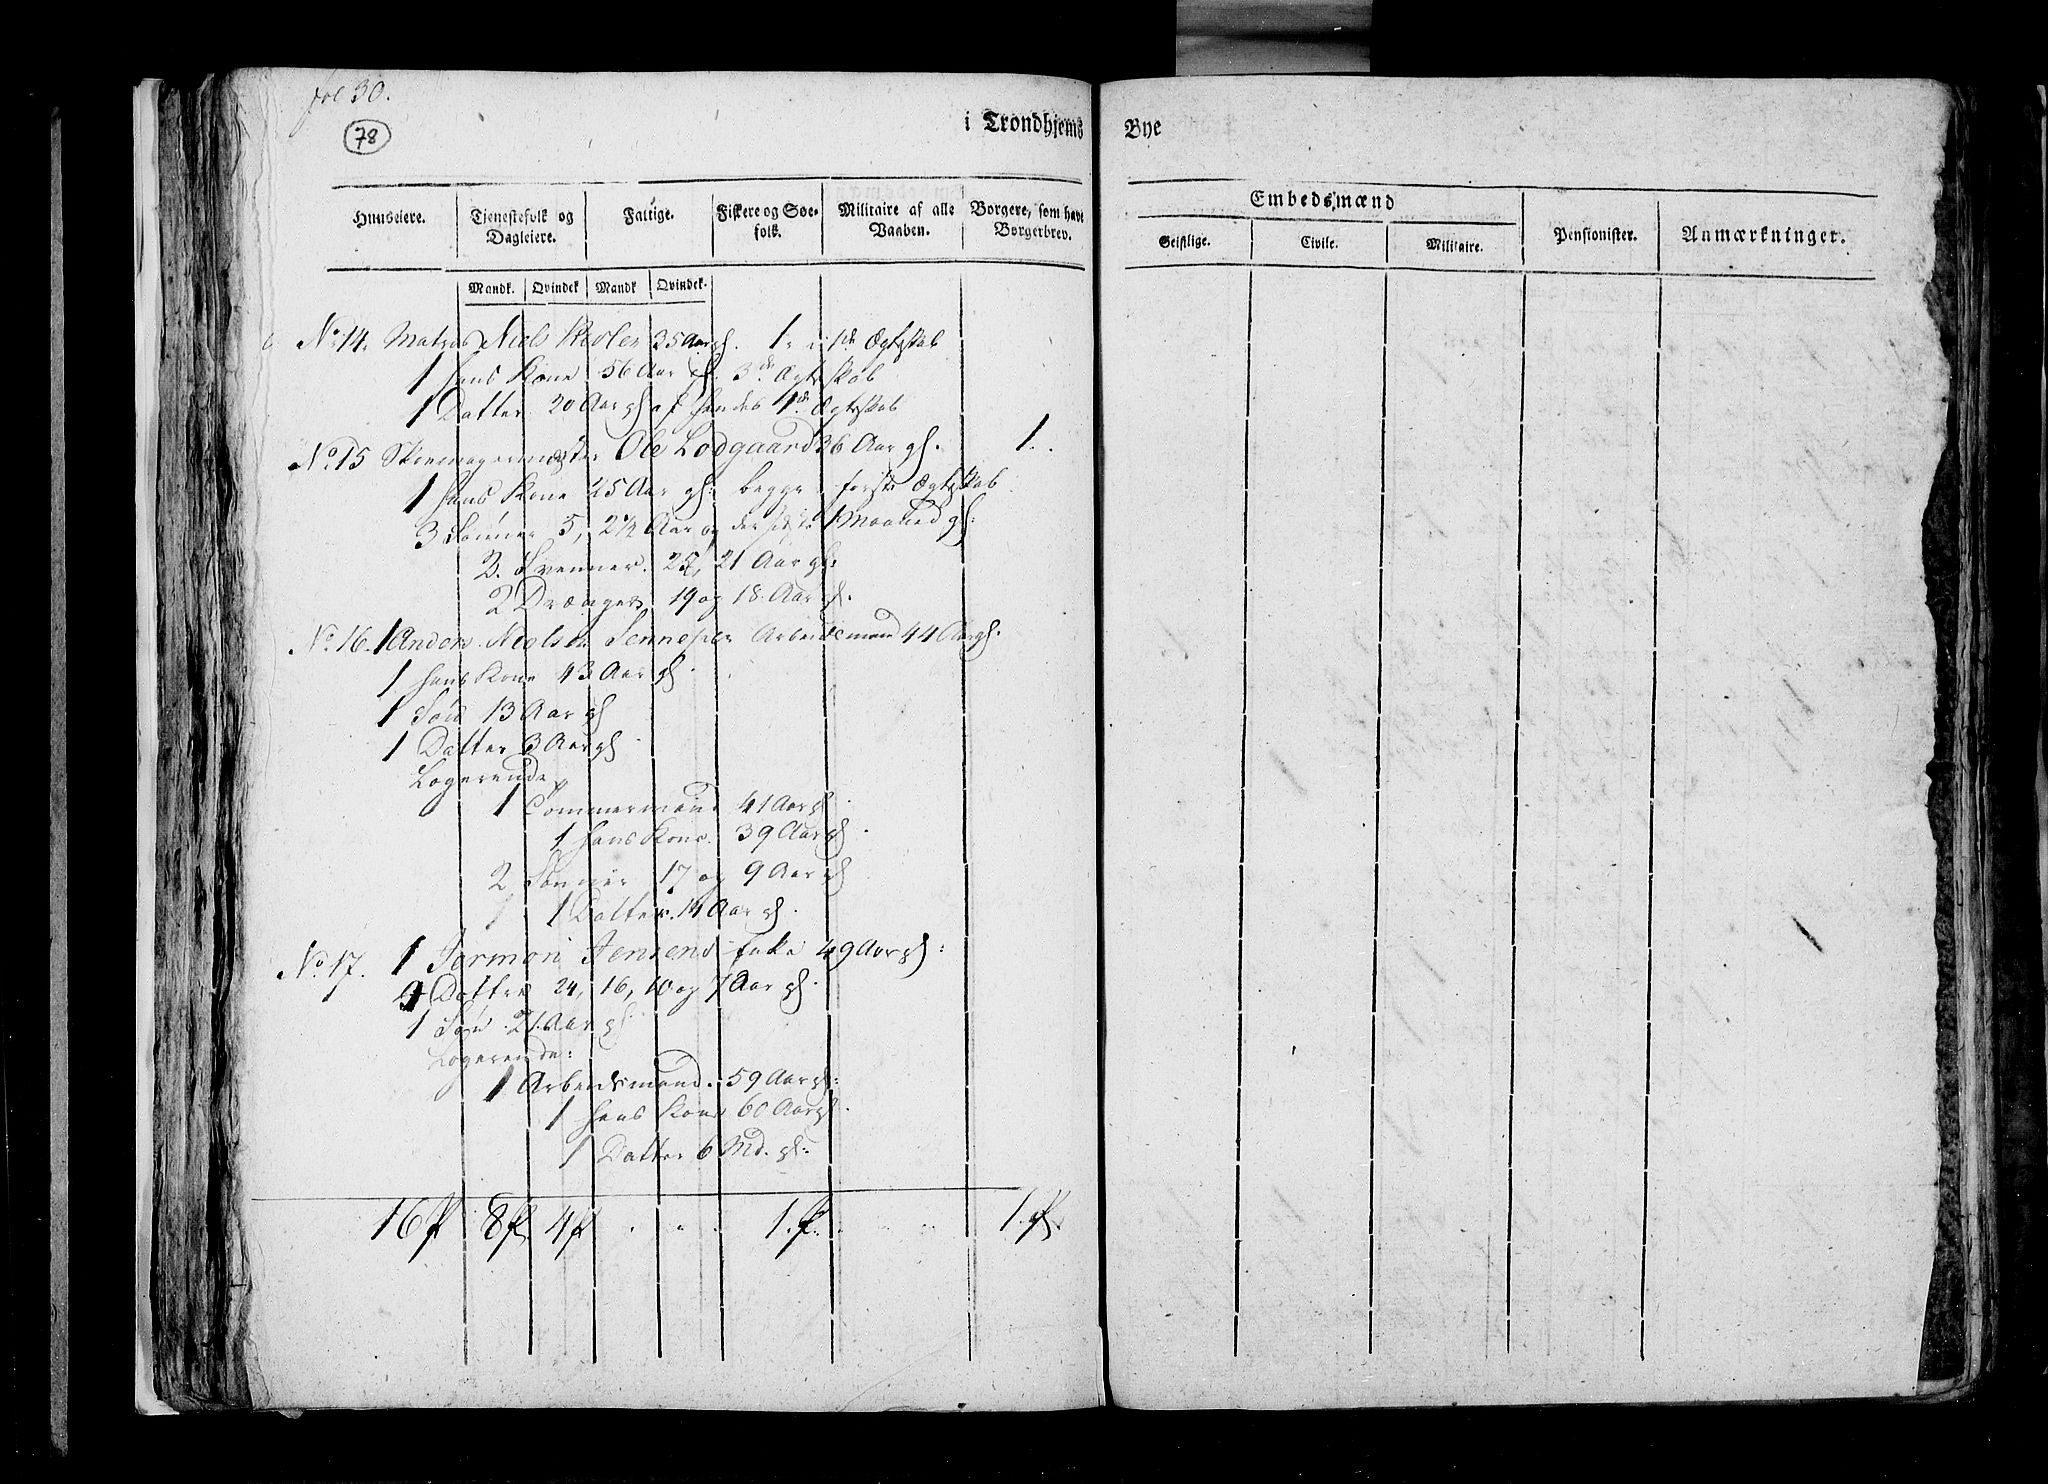 fol 30.
78
i Trondhjems Bye
Huuseiere.
Tjenestefolk og Dagleiere.
Fattige.
Fiskere og Søefolk.
Militaire af alle Vaaben.
Borgere, som have Borgerbrev.
Embedsmænd
Geistlige.
Civile.
Militaire.
Pensionister.
Anmærkninger.
Mandk. Qvindek Mandk Qvindek.
No. 14. Matros Niels 35 Aar gl. 1. i 1ste Ægteskab
1 hans Kone 56 Aar gl. 3de Ægteskab
1 Datter 20 Aar gl af hendes 1ste Ægteskab
No 15 Skoemagermester Ole Lodgaard 36 Aar gl. 1.
1 hans Kone 25 Aar gl: begge første Ægteskab
3 Sønner 5, 2½ Aar og den sidste 1 Maaned gl:
2. Svenner. 25, 21 Aar gl.
2 Drenger 19 og 18 Aar gl.
No 16. 1 Anders Nielsen Arbeidsmand 44 Aar gl.
1 hans Kone 43 Aar gl
1 Søn 13 Aar gl
1 Datter 3 Aar gl
Logerende
1 Tømmermand 41 Aar gl.
1 hans Kone. 39 Aar gl
2 Sønner 17 og 9 Aar gl
1 Datter. 14 Aar gl.
No 17. 1 Jensens Enke 49 Aar gl:
4 Døttre 24, 16, 10 og 7 Aar gl.
1 Søn 21 Aar gl
Logerende:
1 Arbeidsmand. 59 Aar gl:
1 hans Kone 60 Aar gl.
1 Datter 6 Md. gl.
16 8 4 1. 1.